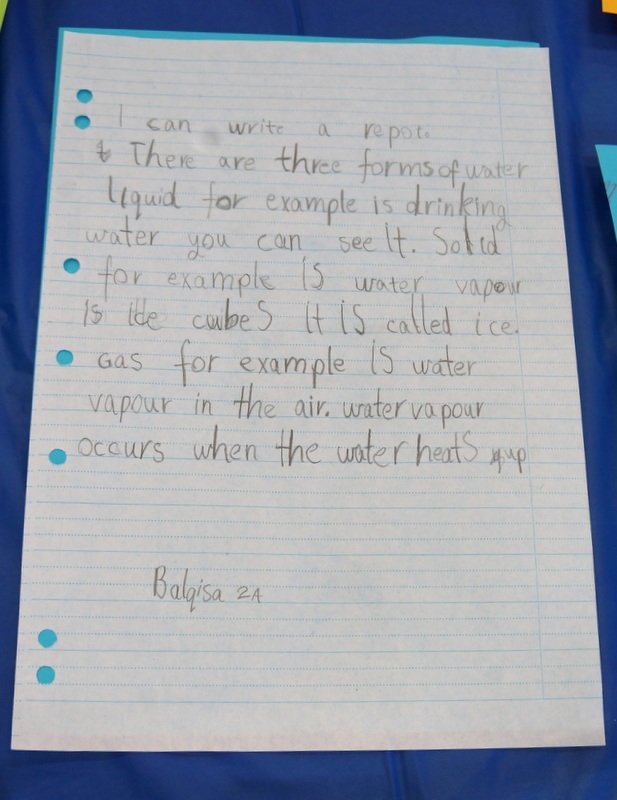 I can write a repot.
There are three forms of water
liquid for example is drinking
water you can see it. Solid
for example is water vapour
is ide cubes it is called ice.
Gas for example is water
vapour in the air. water vapour
occurs when the water heats up
Balqisa 2A